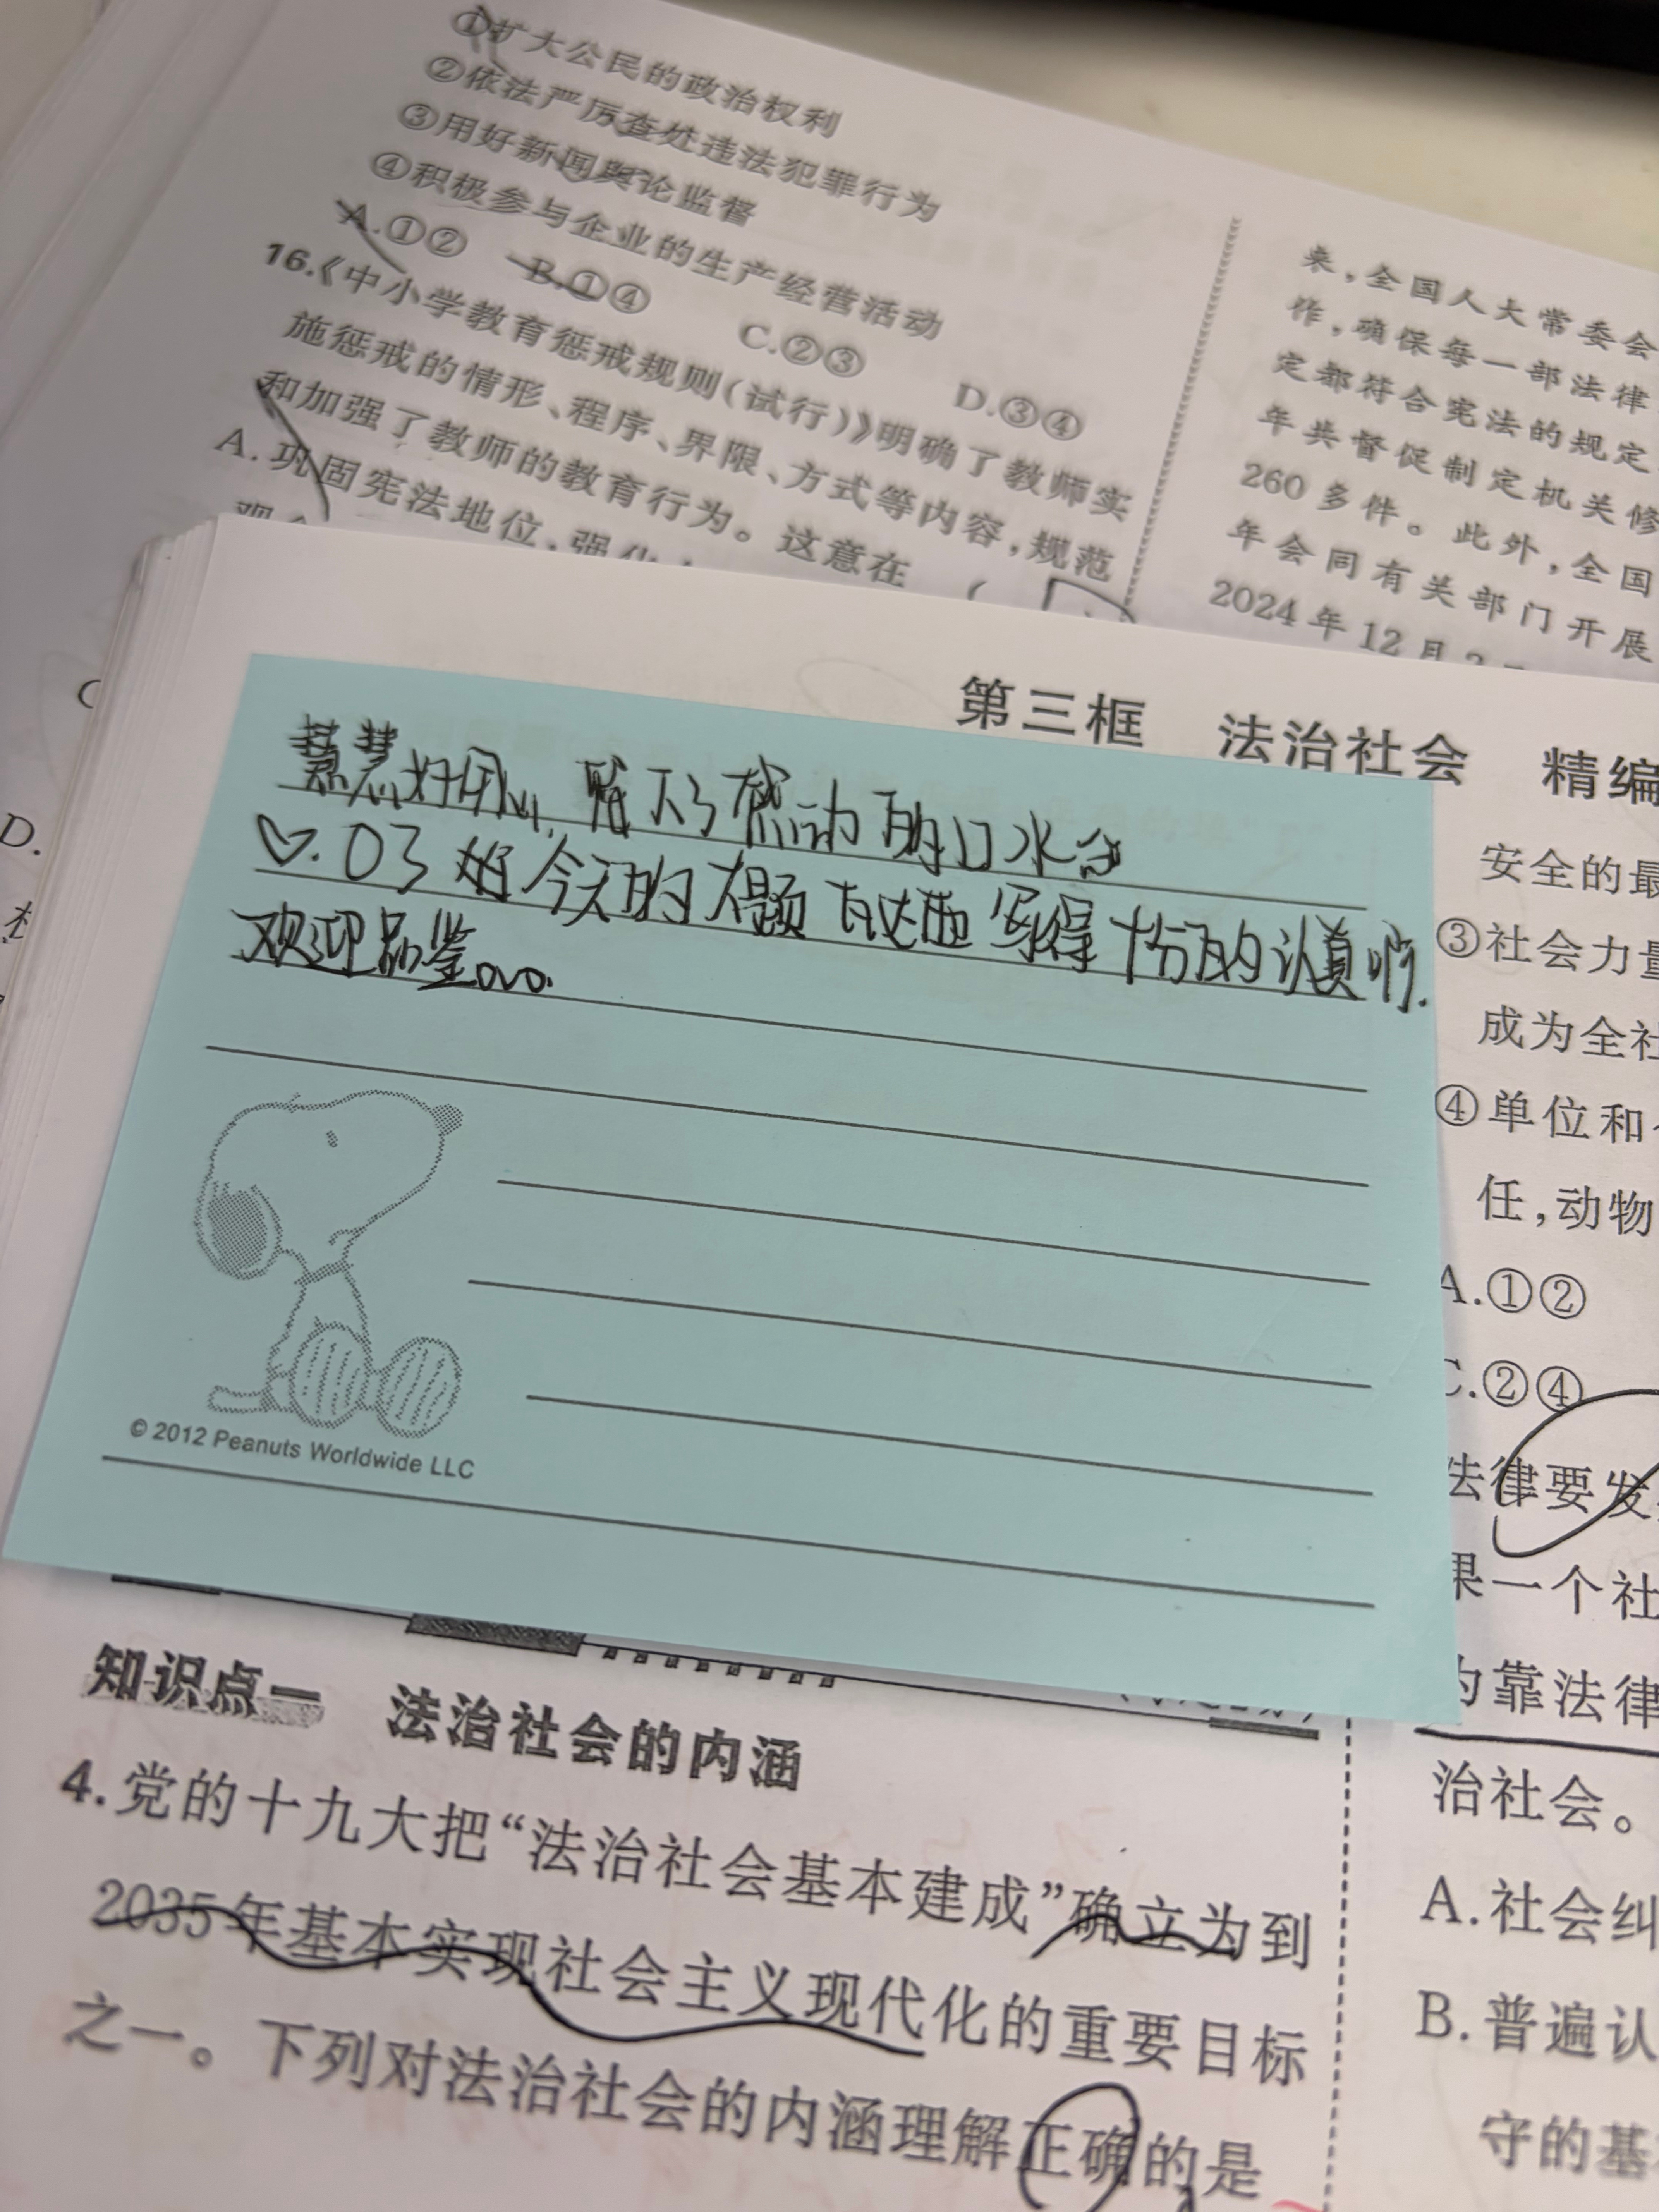 ①扩大公民的政治权利
②依法严厉查处违法犯罪行为
③用好新闻舆论监督
④积极参与企业的生产经营活动
A.①② B.①④ C.②③ D.③④
16.《中小学教育惩戒规则(试行)》明确了教师实
施惩戒的情形、程序、界限、方式等内容,规范
和加强了教师的教育行为。这意在 (
A.巩固宪法地位,强化
来,全国人大常委会
作,确保每一部法律
定都符合宪法的规定
年共督促制定机关修
260多件。此外,全国
年会同有关部门开展
2024年12月
D.
第三框 法治社会 精编
慧慧好用心,
感动的口水
♡.O了 今天的大题 写得十分的认真啊.
欢迎品鉴。
© 2012 Peanuts Worldwide LLC
知识点一 法治社会的内涵
4.党的十九大把“法治社会基本建成”确立为到
2035年基本实现社会主义现代化的重要目标
之一。下列对法治社会的内涵理解正确的是
安全的最
③社会力量
成为全社
④单位和
任,动物
A.①②
C.②④
法律要发
果一个社
为靠法律
治社会。
A.社会纠
B.普遍认
守的基